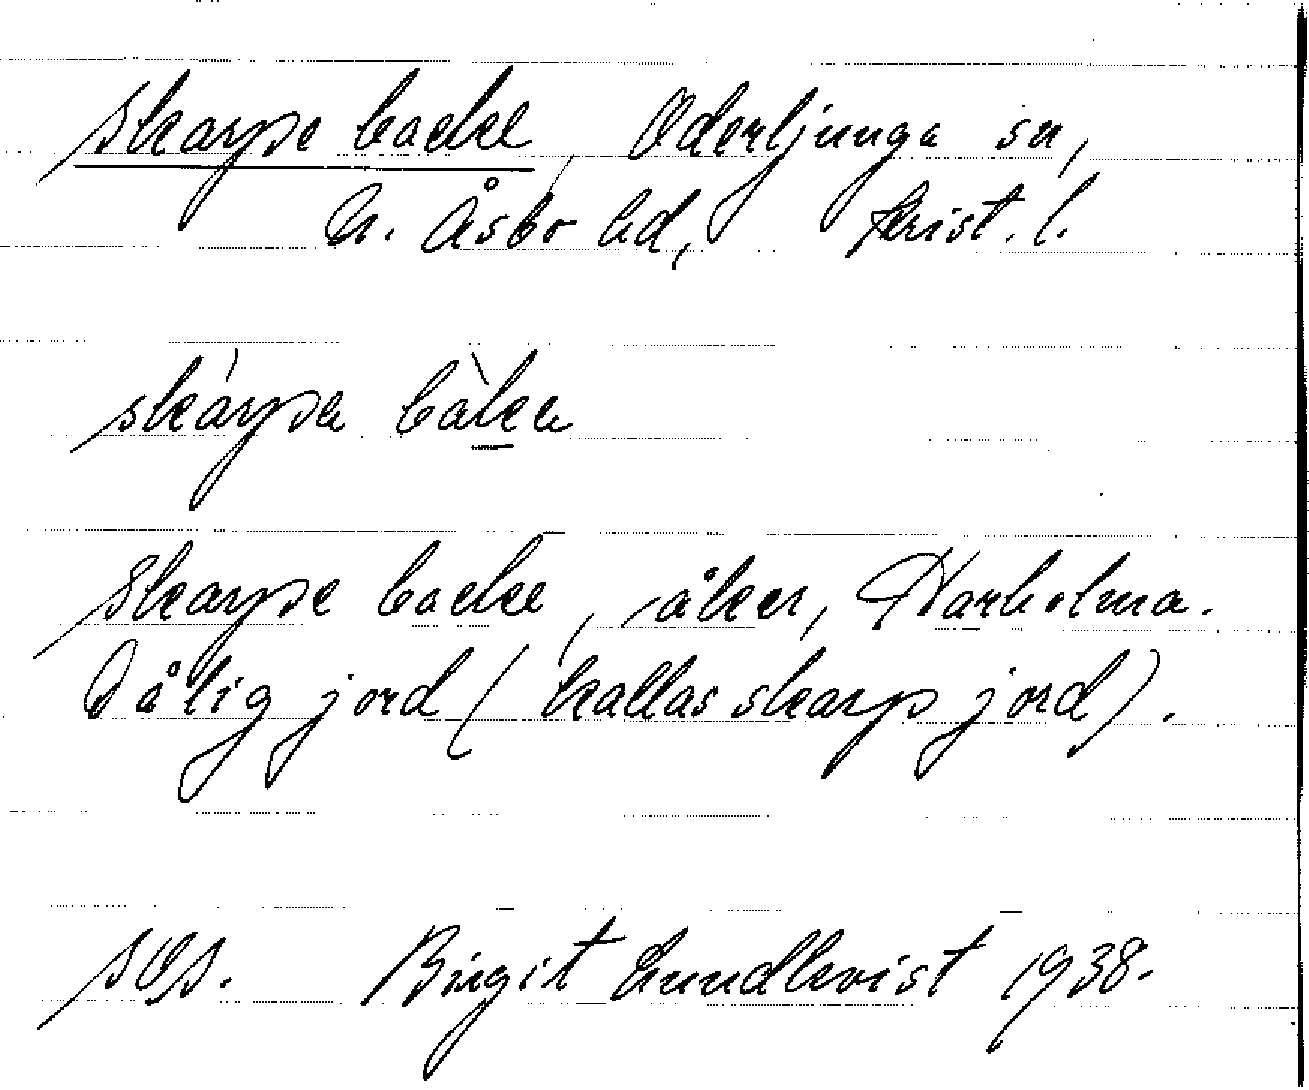 Skarpe backe, Oderljunga sn,
N. Åsbo hd, Krist. l.
skàrpa bàka
Skarpe backe, åker, Harholma.
Dålig jord (kallas skarp jord).
SOA. Birgit Lundkvist 1938.